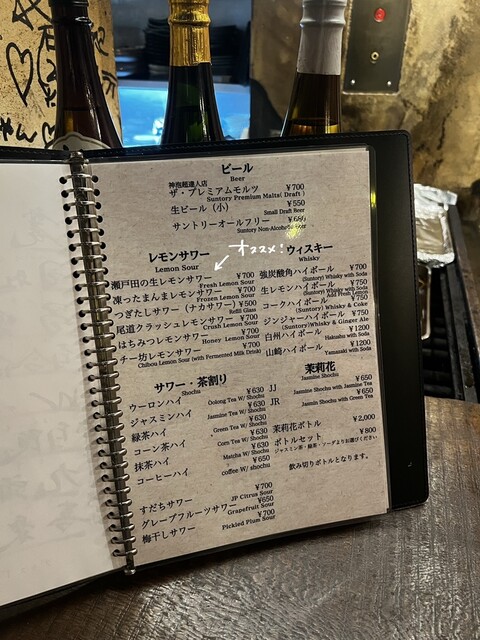 ビール
Beer
神泡超達人店
ザ・プレミアムモルツ ¥700
Suntory Premium Malts( Draft )
生ビール（小） ¥550
Small Draft Beer
サントリーオールフリー ¥680
Suntory Non-Alcoholic Beer
オススメ!
レモンサワー
Lemon Sour
瀬戸田の生レモンサワー ¥700
Fresh Lemon Sour
凍ったまんまレモンサワー ¥700
Frozen Lemon Sour
つぎたしサワー（ナカサワー） ¥500
Refill Glass
尾道クラッシュレモンサワー ¥700
Crush Lemon Sour
はちみつレモンサワー ¥700
Honey Lemon Sour
チー坊レモンサワー ¥700
Chibou Lemon Sour (with Fermented Milk Drink)
ウィスキー
Whisky
強炭酸角ハイボール ¥700
(Suntory) Whisky with Soda
生レモンハイボール ¥750
(Suntory) Whisky with Soda
Add Fresh Lemon
コークハイボール ¥750
(Suntory) Whisky & Coke
ジンジャーハイボール ¥750
(Suntory) Whisky & Ginger Ale
白州ハイボール ¥1200
Hakushu with Soda
山崎ハイボール ¥1200
Yamazaki with Soda
サワー・茶割り
Shochu
ウーロンハイ ¥630
Oolong Tea W/ Shochu
ジャスミンハイ ¥630
Jasmine Tea W/ Shochu
緑茶ハイ ¥630
Green Tea W/ Shochu
コーン茶ハイ ¥630
Corn Tea W/ Shochu
抹茶ハイ ¥630
Matcha W/ Shochu
コーヒーハイ ¥650
coffee W/ shochu
すだちサワー ¥700
JP Citrus Sour
グレープフルーツサワー ¥650
Grapefruit Sour
梅干しサワー ¥700
Pickled Plum Sour
茉莉花
Jasmine Shochu
JJ ¥650
Jasmine Shochu with Jasmine Tea
JR ¥650
Jasmin Shochu with Green Tea
茉莉花ボトル ¥2,000
ボトルセット ¥800
ジャスミン茶・緑茶・ソーダよりお選びください
飲み切りボトルとなります。